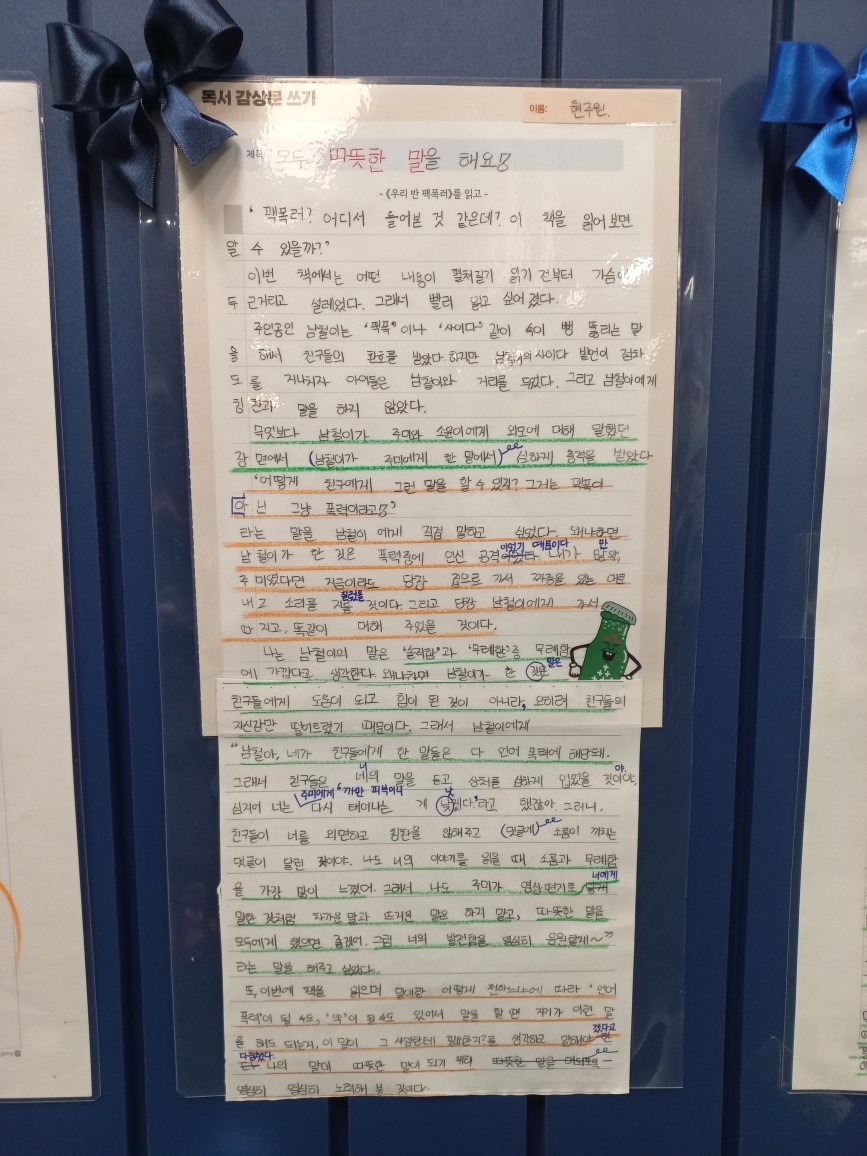 독서 감상문 쓰기
이름: 현주원
제목 모두 따뜻한 말을 해요!
-《우리 반 팩폭러》를 읽고-
'팩폭러? 어디서 들어본 것 같은데? 이 책을 읽어보면
알 수 있을까?'
이번 책에서는 어떤 내용이 펼쳐질지 읽기 전부터 가슴이
두근거리고 설레었다. 그래서 빨리 읽고 싶어 졌다.
주인공인 남철이는 '팩폭'이나 '사이다'같이 속이 뻥 뚫리는 말
을 해서 친구들의 환호를 받았다. 하지만 남철이의 사이다 발언이 점차
도를 지나치자 아이들은 남철이와 거리를 두었다. 그리고 남철이에게
칭찬과 말을 하지 않았다.
무엇보다 남철이가 주미와 소윤이에게 외모에 대해 말했던
장면에서 (남철이가 주미에게 한 말에서) 심하게 충격을 받았다
'어떻게 친구에게 그런 말을 할 수 있지? 그거는 팩폭이
아닌 그냥 폭력이라고!'
라는 말을 남철이에게 직접 말하고 싶었다. 왜냐하면
남철이가 한 것은 폭력중에 인신 공격이었기 때문이다. 내가 만약,
주미였다면 지금이라도 당장 집으로 가서 짜증을 있는 대로
내고 소리를 질렀을 것이다. 그리고 당장 남철이에게 가서
따지고, 똑같이 대해 주었을 것이다.
나는 남철이의 말은 '솔직함'과 '무례함'중 무례함
에 가깝다고 생각한다. 왜냐하면 남철이가 한 말은
친구들에게 도움이 되고 힘이 된 것이 아니라, 오히려 친구들의
자신감만 떨어트렸기 때문이다. 그래서 남철이에게
"남철아, 네가 친구들에게 한 말들은 다 언어 폭력에 해당돼.
그래서 친구들은 너의 말을 듣고 상처를 심하게 입었을 것이야.
심지어 너는 주미에게 "까만 피부이니 다시 태어나는 게 낫겠다."라고 했잖아. 그러니,
친구들이 너를 외면하고 칭찬을 않해주고 (댓글에) 소름이 끼치는
댓글이 달린 것이야. 나도 너의 이야기를 읽을 때 소름과 무례함
을 가장 많이 느꼈어. 그래서 나도 주미가 영상편지로 너에게
말한 것처럼 차가운 말과 뜨거운 말은 하지 말고, 따뜻한 말을
모두에게 했으면 좋겠어. 그럼 너의 발전함을 열심히 응원할게~"
라는 말을 해주고 싶었다.
또, 이번에 책을 읽으며 말이란 어떻게 전하느냐에 따라 '언어
폭력'이 될 수도, '약'이 될 수도 있어서 말을 할 땐 자기가 이런 말
을 해도 되는지, 이 말이 그 사람한테 필요한지?를 생각하고 말해야겠다고
다짐했다. 나의 말이 따뜻한 말이 되기 위해
열심히 열심히 노력해 볼 것이다.